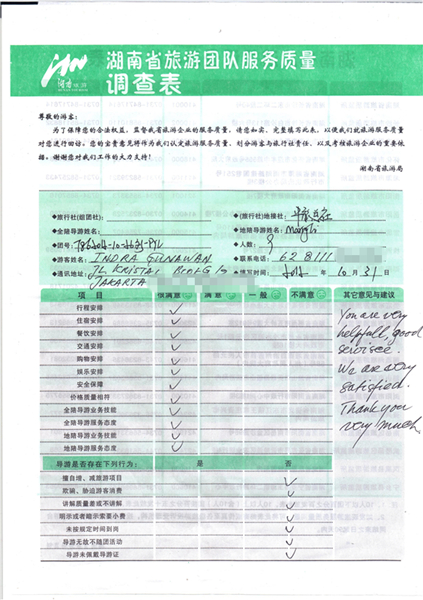 湖南省旅游团队服务质量
调查表
尊敬的游客:
为了保障您的合法权益,监督我省旅游企业的服务质量,请您如实、完整填写此表,以便我们就旅游服务质量
对您进行回访。您的宝贵意见将作为我们认定旅游服务质量,划分游客与旅行社责任,以及考核旅游企业的重要依
据。谢谢您对我们工作的大力支持!
湖南省旅游局
◆旅行社(组团社): ◆(旅行社)地接社:
◆全陪导游姓名: ◆地陪导游姓名:
◆团号: ◆人数:
◆游客姓名: INDRA GUNAWAN ◆联系电话: 628111
◆通讯地址: JL. KRISTAL ◆填写时间: 年 10 月 31 日
JAKARTA
项 目 很满意 满 意 一 般 不满意 其它意见与建议
行程安排 ✓ You are very
住宿安排 ✓ helpfull, good
餐饮安排 ✓ servicee.
交通安排 ✓ We are very
购物安排 ✓ satisfied.
娱乐安排 ✓ Thank you
安全保障 ✓ very much.
价格质量相符 ✓
全陪导游业务技能 ✓
全陪导游服务态度 ✓
地陪导游业务技能 ✓
地陪导游服务态度 ✓
导游是否存在下列行为: 是 否
擅自增、减旅游项目 ✓
欺骗、胁迫游客消费 ✓
讲解质量差或不讲解 ✓
明示或者暗示索要小费 ✓
未按规定时间到岗 ✓
导游无故不随团活动 ✓
导游未佩戴导游证 ✓